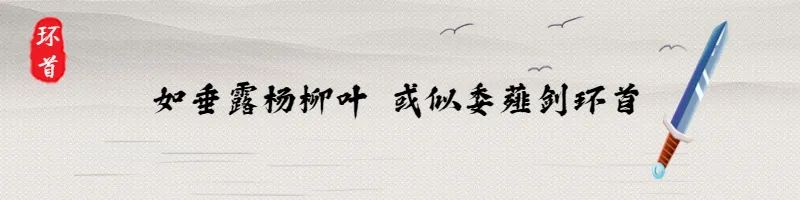 环首
如垂露杨柳叶 或似委薤剑环首